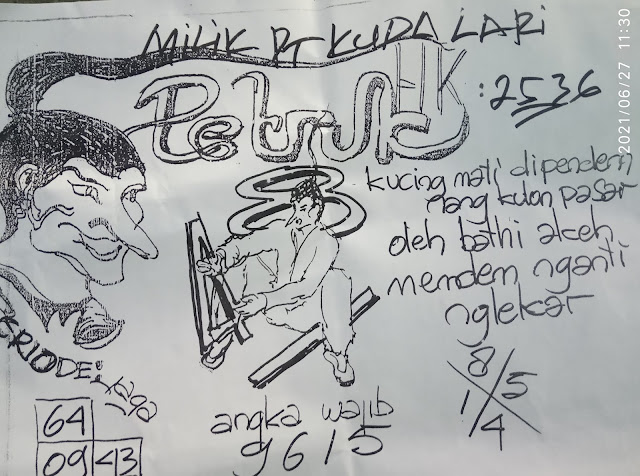 MILIK PT KUDA LARI
Petruk HK : 2536
8
kucing mati dipendem
nang kulon pasar
oleh bathi akeh
mendem nganti
nglekar
8
1 5
4
angka wajib
9615
64
09 43
2021/06/27 11:30